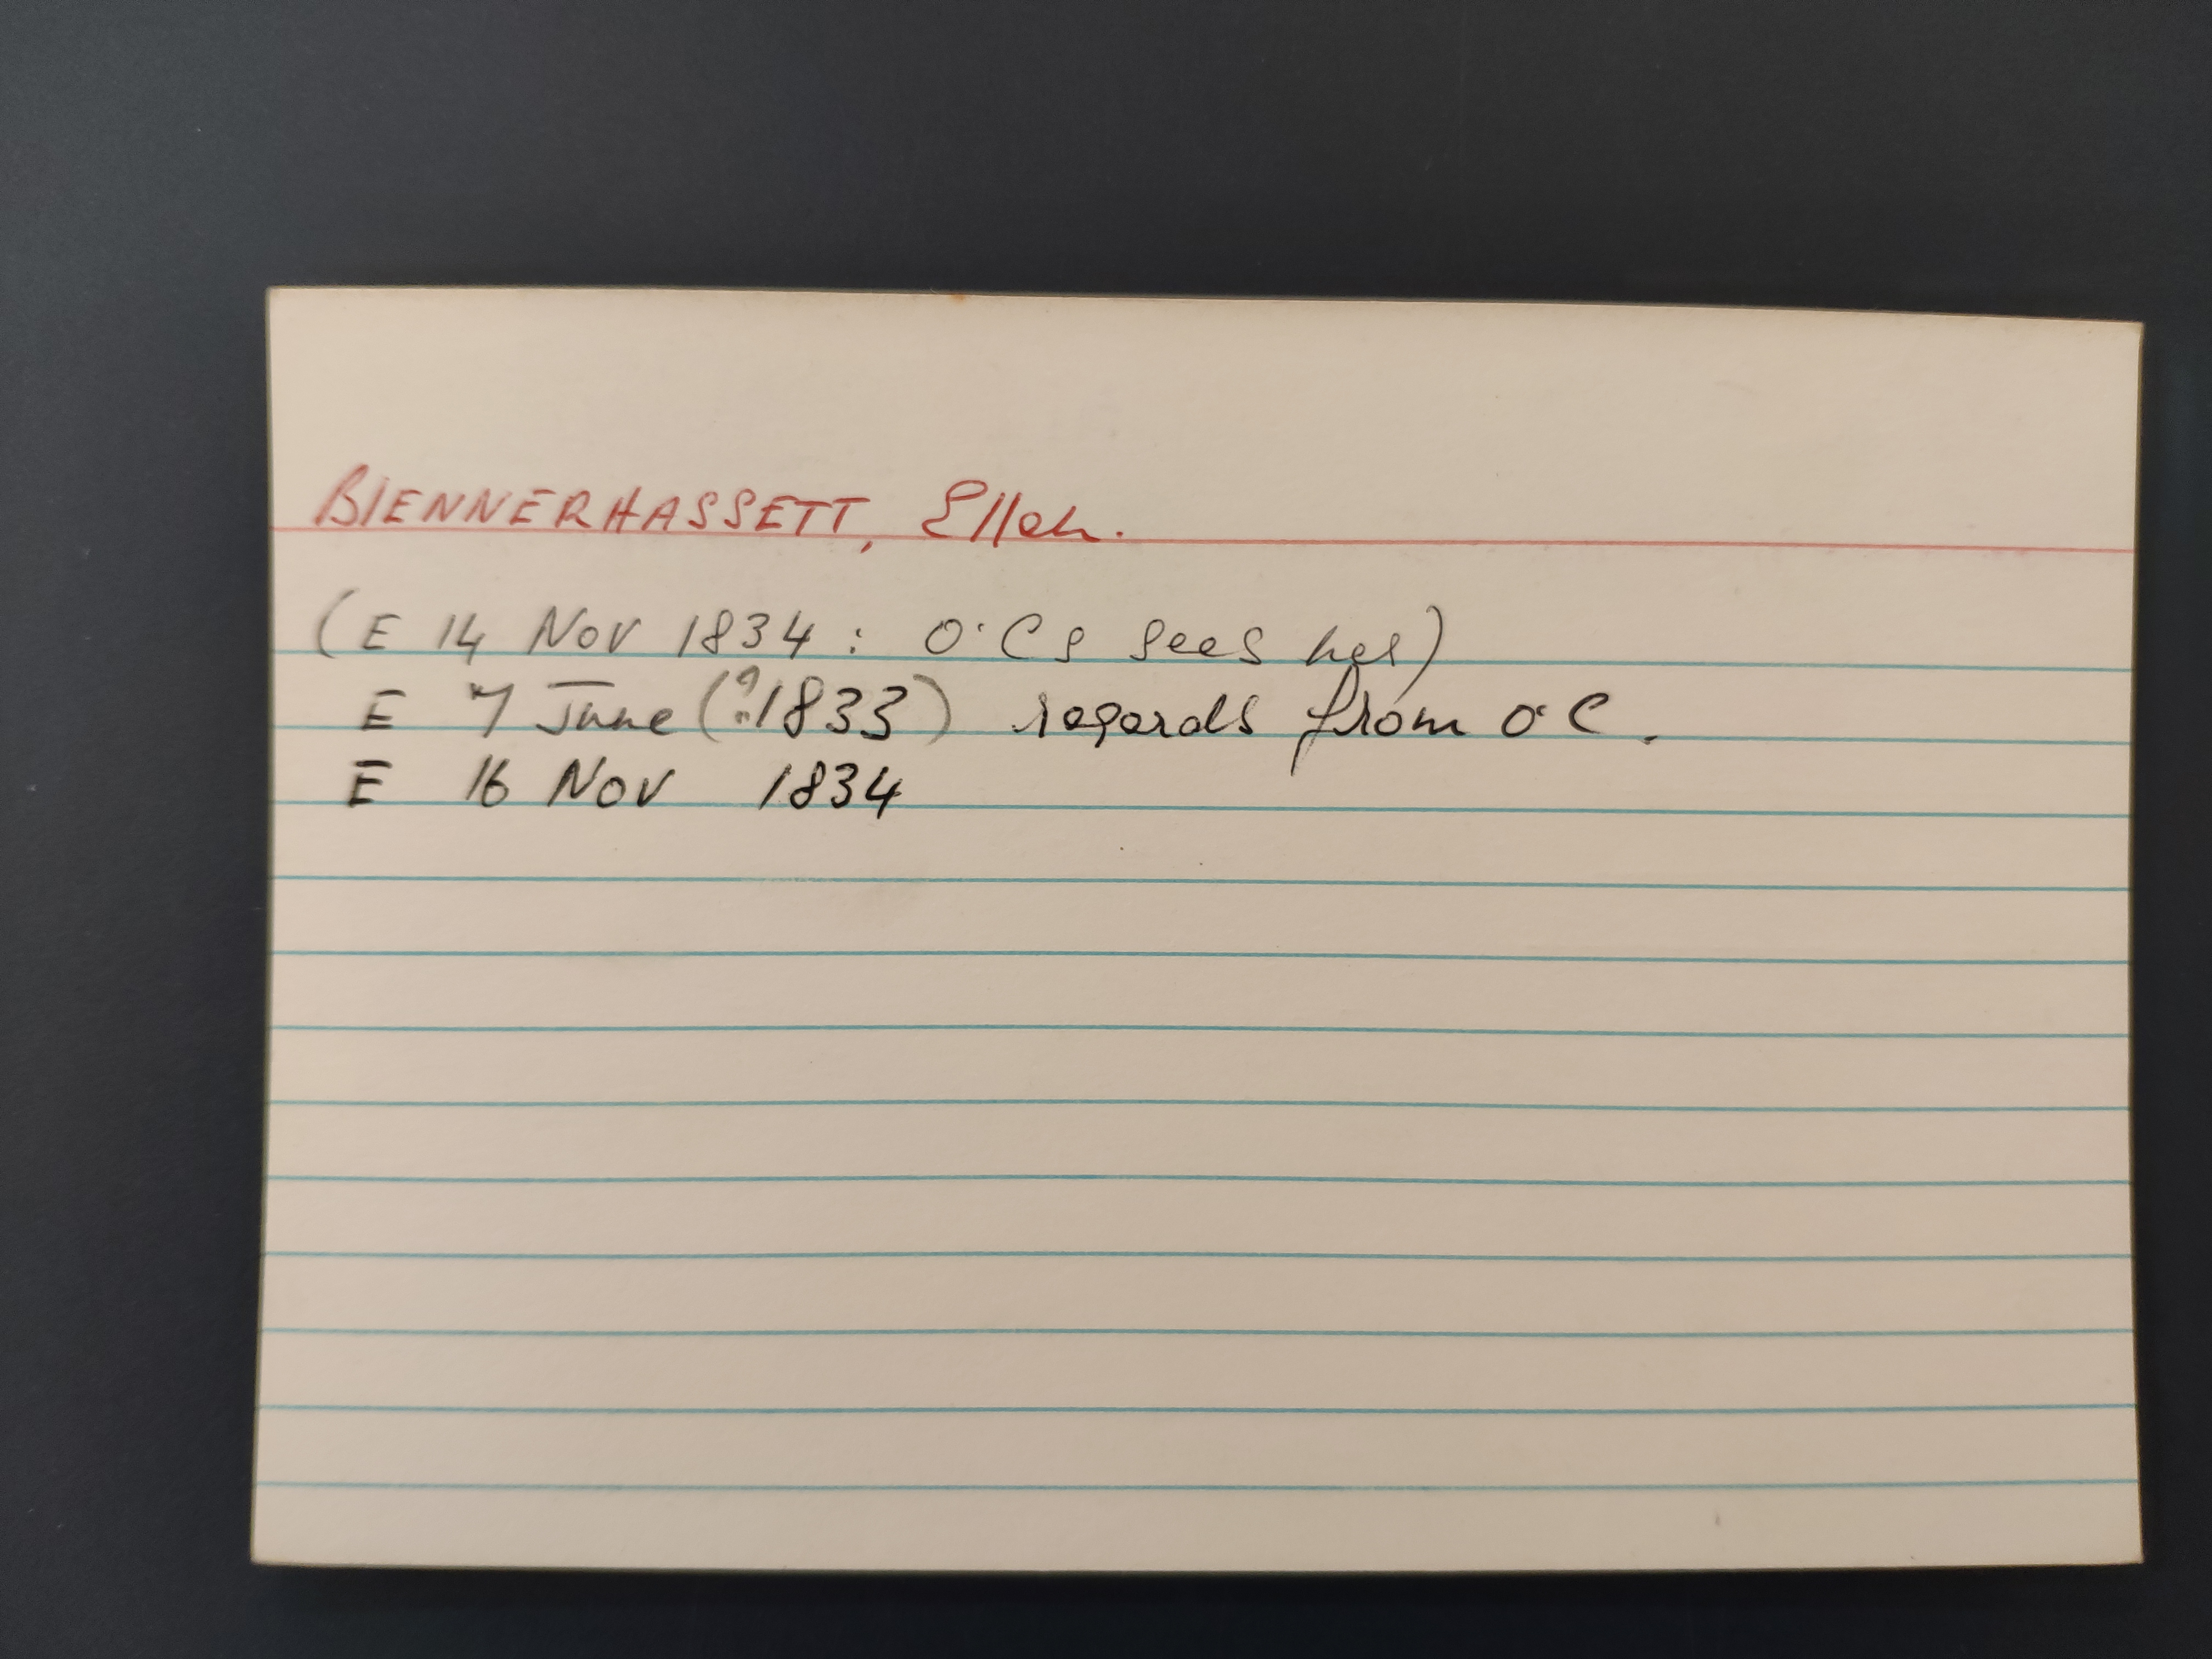 BlENNERHASSETT, Ellen.
(E 14 Nov 1834 : O'Cs sees her)
E 7 June (?1833) regards from O'C.
E 16 Nov 1834